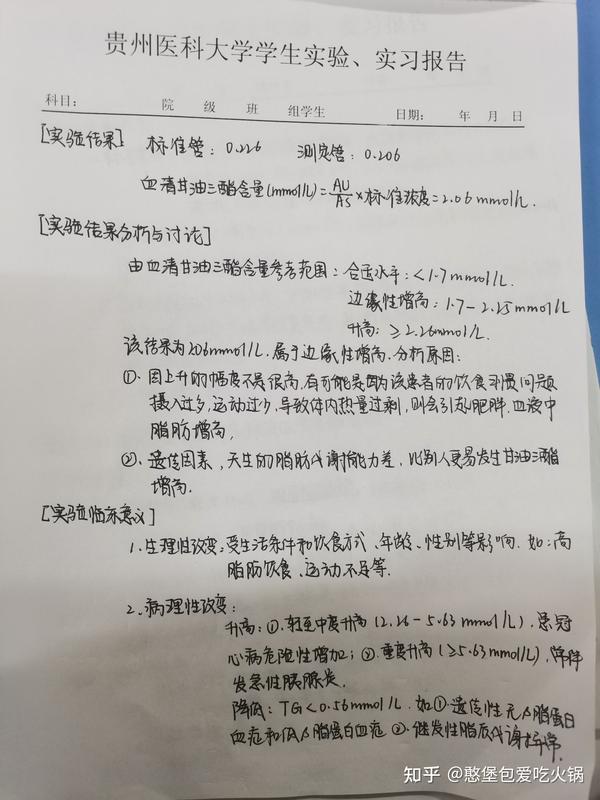 贵州医科大学学生实验、实习报告
科目： 院 级 班 组学生 日期： 年 月 日
[实验结果] 标准管：0.226 测定管：0.206
血清甘油三酯含量(mmol/L)=AU/AS×标准浓度=2.06mmol/L.
[实验结果分析与讨论]
由血清甘油三酯含量参考范围：合适水平：<1.7mmol/L.
边缘性增高：1.7-2.25mmol/L
升高：≥2.26mmol/L.
该结果为2.06mmol/L.属于边缘性增高.分析原因：
①.因上升的幅度不是很高,有可能是因为该患者的饮食习惯问题
摄入过多,运动过少,导致体内热量过剩,则会引起肥胖.血液中
脂肪增高.
②.遗传因素,天生的脂肪代谢能力差,比别人更易发生甘油三酯
增高.
[实验临床意义]
1.生理性改变：受生活条件和饮食方式、年龄、性别等影响.如：高
脂肪饮食、运动不足等.
2.病理性改变：
升高：①.轻至中度升高(2.26-5.63mmol/L).患冠
心病危险性增加；②.重度升高(≥5.63mmol/L),常伴
发急性胰腺炎.
降低：TG<0.56mmol/L.如①.遗传性无β脂蛋白
血症和低β脂蛋白血症②.继发性脂质代谢异常.
知乎 @憨堡包爱吃火锅